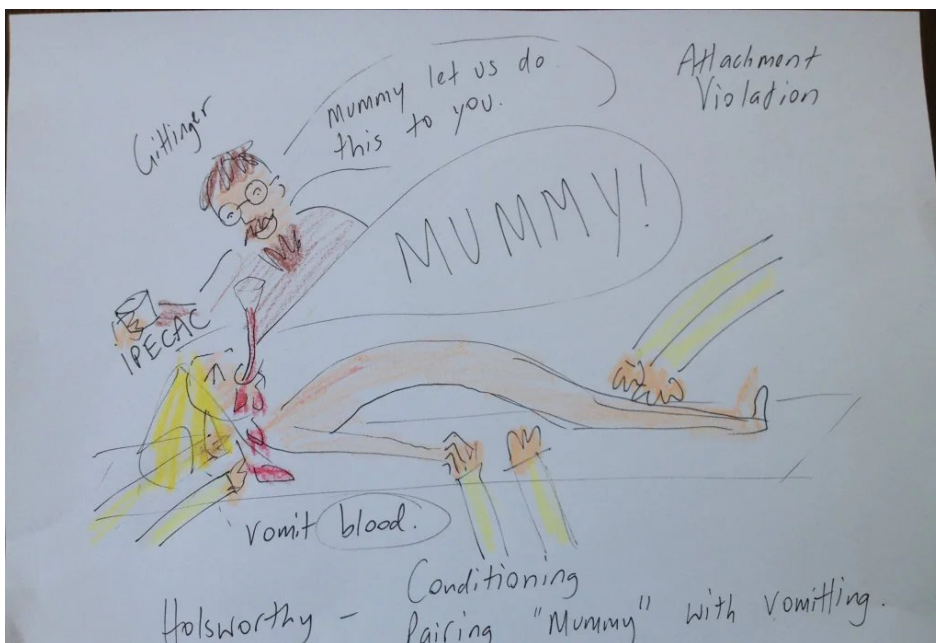 Gittinger
Mummy let us do
this to you.
Attachment
Violation
MUMMY!
IPECAC
vomit blood.
Conditioning
Holsworthy - Pairing "Mummy" with vomitting.